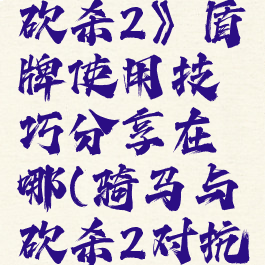 砍杀2》盾
牌使用技
巧分享在
哪(骑马与
砍杀2对抗